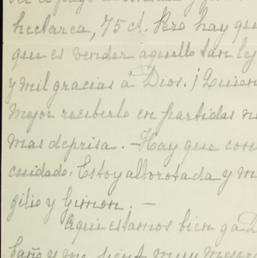 hectarea, 75 ct. Pero hay que
que es vender aquello tan lej
y mil gracias a Dios. ¡Quien
mejor recibirlo en partidas
mas deprisa. - Hay que con
cuidado. Estoy alborotada y m
gilio y Gimon. -
Aqui estamos bien ga D
baño y me sient muy mejor